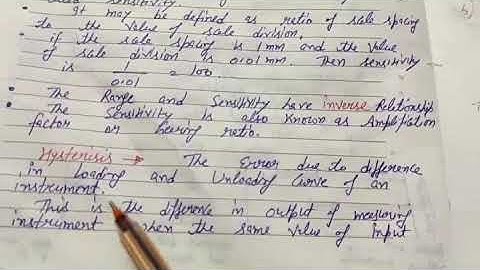 sensitivity.
• It may be defined as ratio of scale spacing
to the value of scale division.
• if the scale spacing is 1mm and the value
of scale division is 0.01mm. Then sensitivity
is 1/0.01 = 100.
• The Range and Sensitivity have inverse Relationship
• The Sensitivity is also known as Amplification
factor or Gearing ratio.
Hysterisis → The Error due to difference
in loading and Unloading Curve of an
instrument.
This is the difference in output of measuring
instrument when the same value of Input